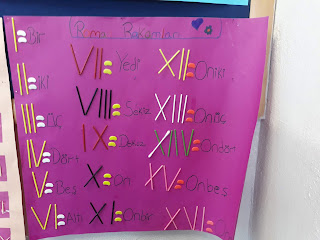 Roma Rakamları
I = Bir
II = İki
III = Üç
IV = Dört
V = Beş
VI = Altı
VII = Yedi
VIII = Sekiz
IX = Dokuz
X = On
XI = Onbir
XII = Oniki
XIII = Onüç
XIV = Ondört
XV = Onbeş